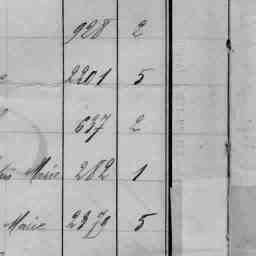 928 2
2201 5
637 2
Marie 282 1
Marie 2379 5